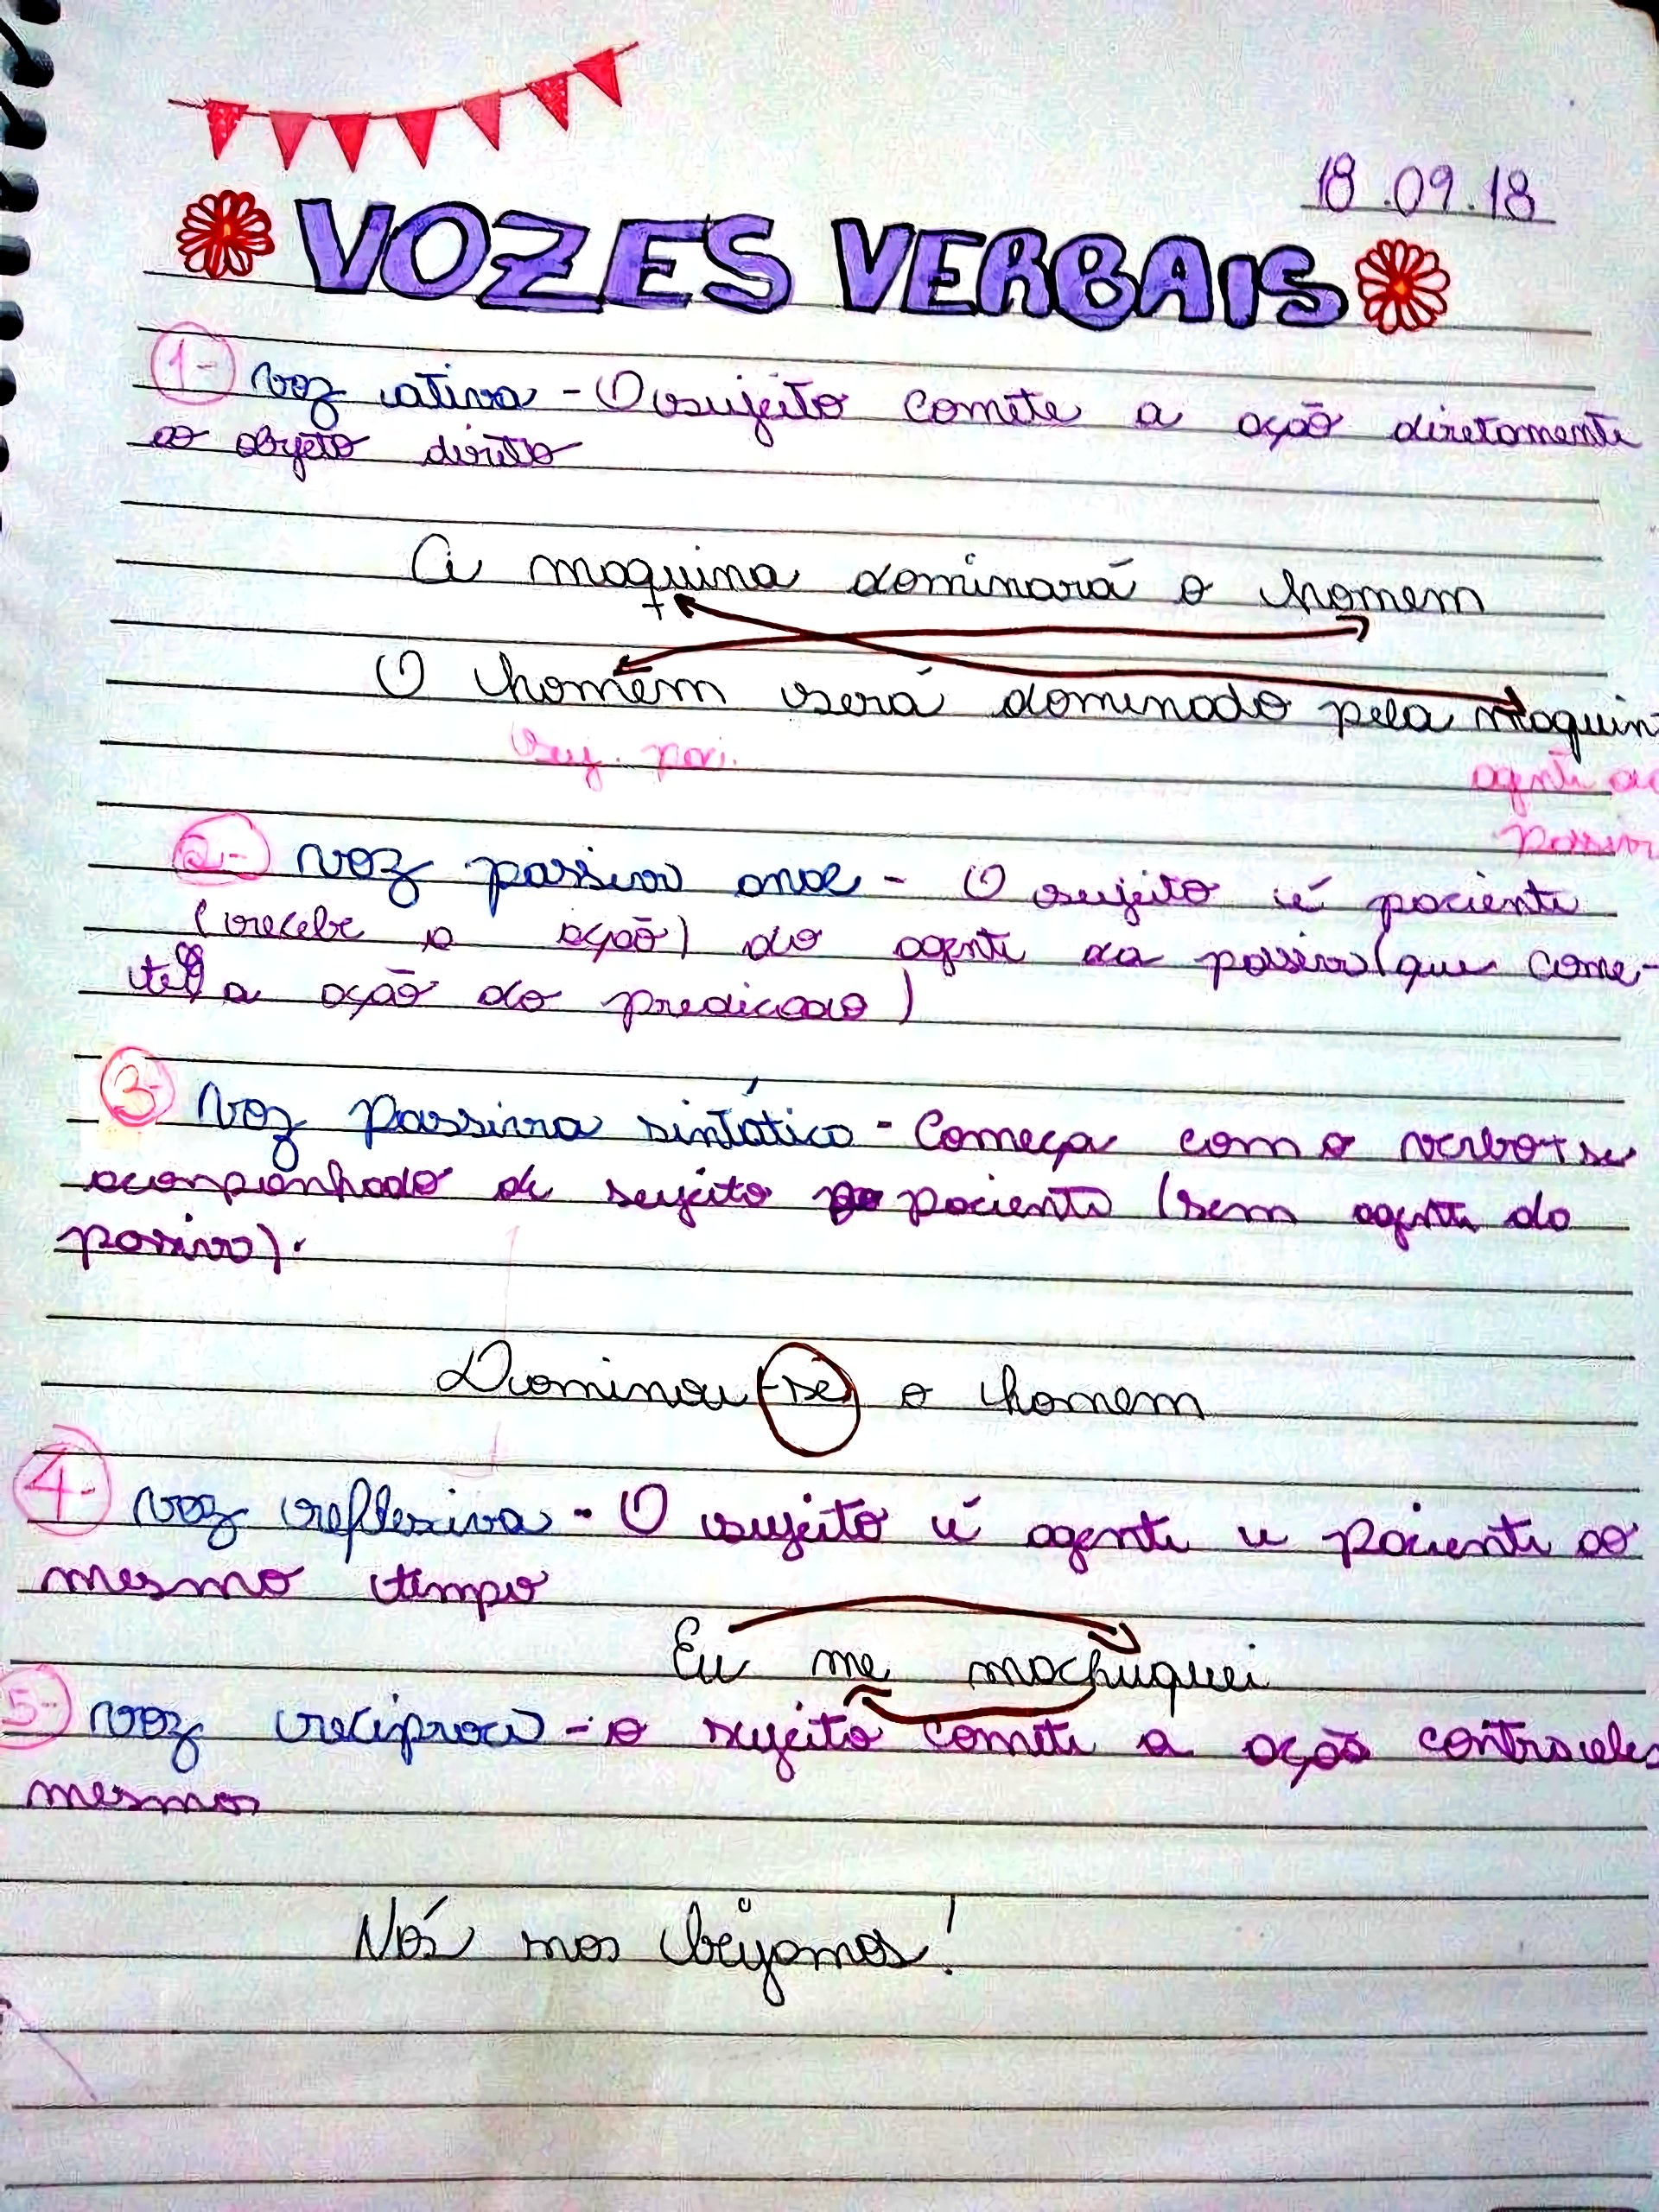 18.09.18
VOZES VERBAIS
1- voz ativa - O sujeito comete a ação diretamente
ao objeto direto
A maquina dominará o homem
O homem será dominado pela maquin
suj. paci.
agente da
passiva
2- voz passiva anal - O sujeito é paciente
(recebe a ação) do agente da passiva (que come-
te a ação do predicado)
3- Voz Passiva sintática - Começa com o verbo + se
acompanhado de sujeito paciente (sem agente da
passiva).
Dominou-se o homem
4- voz reflexiva - O sujeito é agente e paciente ao
mesmo tempo
Eu me machuquei
5- voz recíproca - o sujeito comete a ação contra eles
mesmos
Nós nos beijamos!